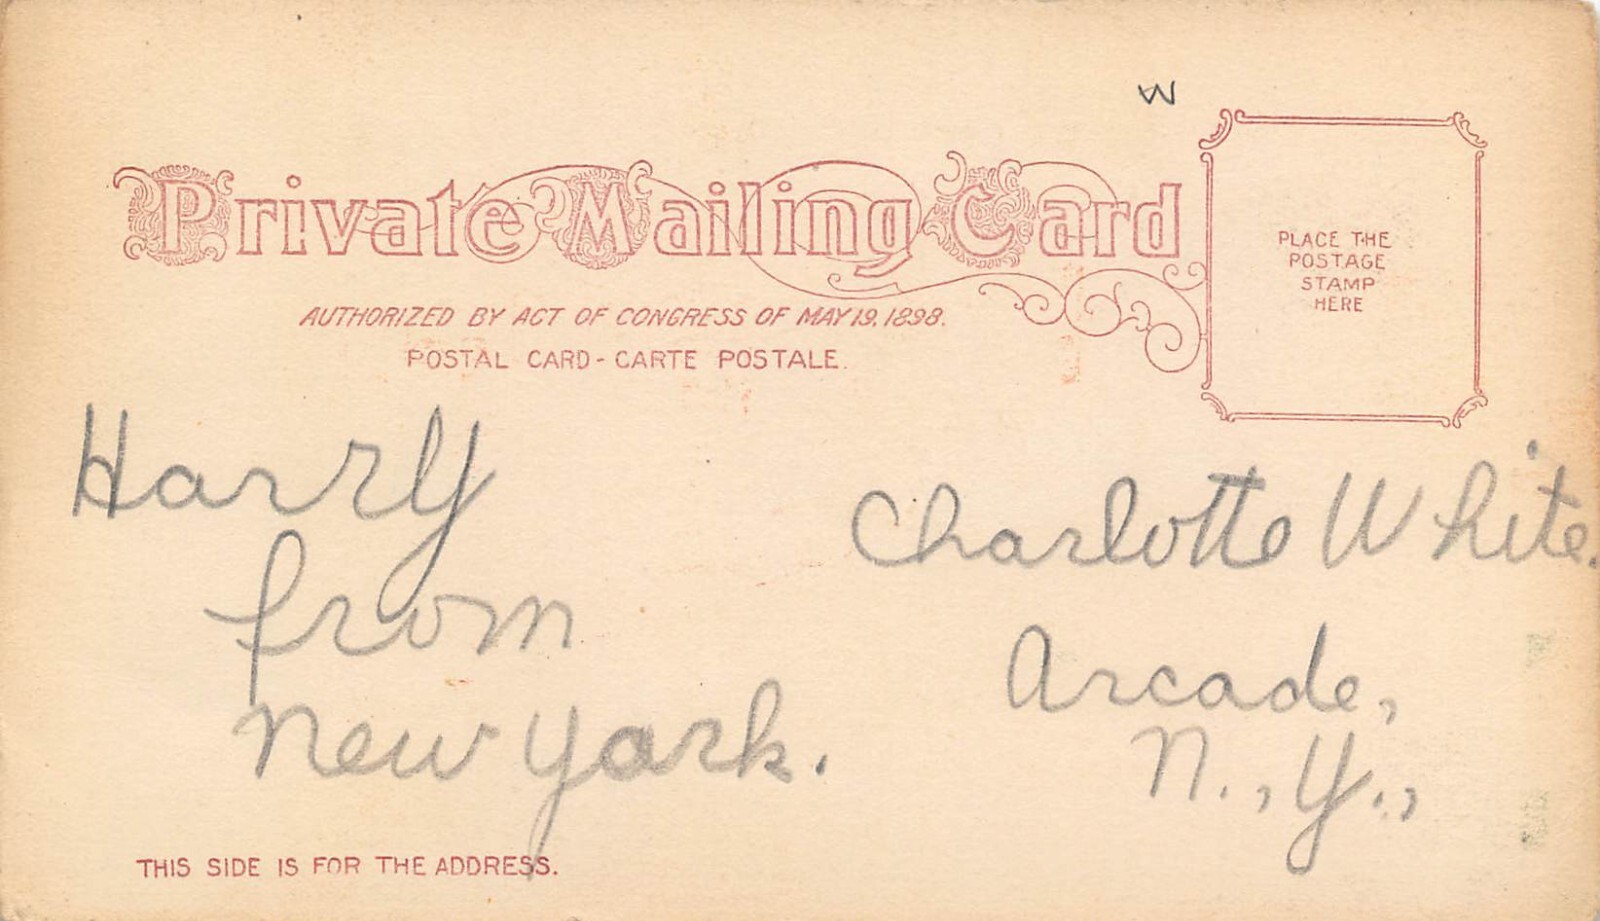 W
Private Mailing Card
PLACE THE
POSTAGE
STAMP
HERE
AUTHORIZED BY ACT OF CONGRESS OF MAY 19, 1898.
POSTAL CARD - CARTE POSTALE.
Harry
from
New York.
Charlotte White.
Arcade,
N., Y.,
THIS SIDE IS FOR THE ADDRESS.